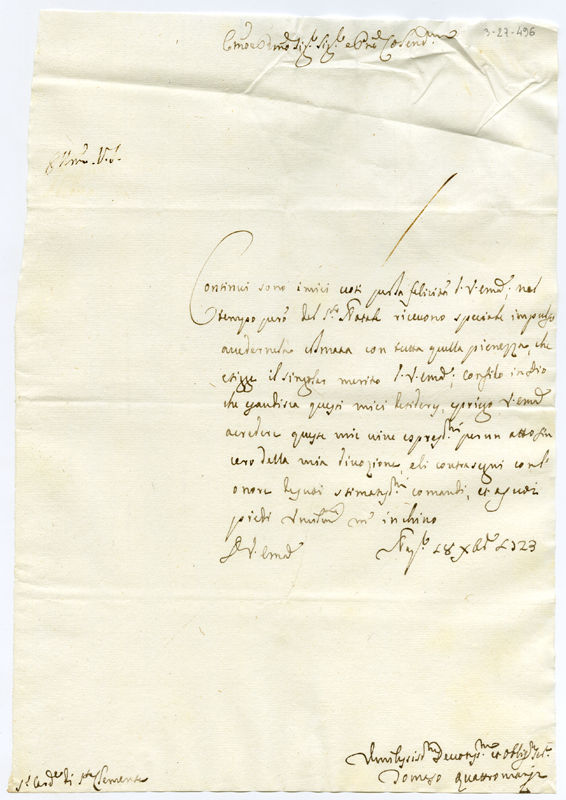 3-27-496
Em.mo e R.mo Sig.r Sig.r e P.ne Col.mo
Continui sono i miei voti per la felicità di V. Em.za; nel
tempo però del S.to Natale ricevono speciale impulso
con tutta quella pienezza, che
esigge il singolar merito di V. Em.za; confido in Dio
che gaudisca questi miei desiderj, e priego V. Em.za
a credere queste mie vive espress.ni per un atto sin
cero della mia divozione, e li contrasegni con l'
onore de suoi stimatis.mi comandi, et a suoi
piedi umilm.te m'inchino
Di V. Em.za
Nap. 18 Xbre 1723
Umiliss.mo Devotiss.mo et Oblig.mo Ser.
Domen.o Quattromani
S.r Card.le di S. Clemente